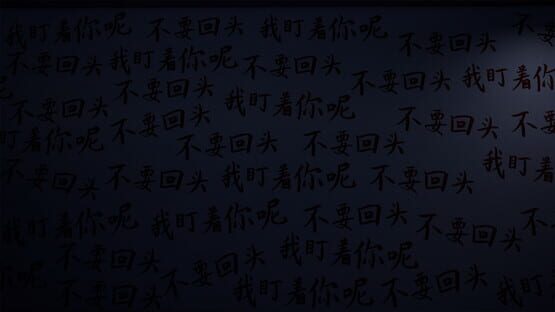 我盯着你呢 不要回头 我盯着你呢 不要回头 不要
不要回头 我盯着你呢 不要回头 不要回头 我盯着你呢
呢 不要回头 不要回头 我盯着你呢 不要回头 不要
盯着你呢 不要回头 不要回头 不要回头 我盯着
不要回头 不要回头 我盯着你呢 不要回头
我盯着你呢 我盯着你呢 不要回头 不要回头 不
呢 不要回头 不要回头 我盯着你呢
不要回头 我盯着你呢 不要回头 我盯着